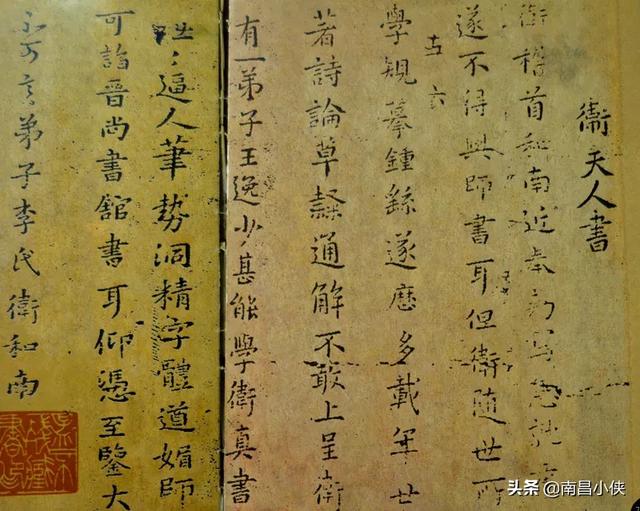 衛夫人書
衛稽首和南近奉勑寫急就章
遂不得與師書耳但衛隨世所
學規摹鍾繇遂歷多載年廿
五六
著詩論草隸通解不敢上呈衛
有一弟子王逸少甚能學衛真書
咄咄逼人筆勢洞精字體遒媚師
可詣晉尚書館書耳仰憑至鑒大
不可言弟子李氏衛和南
头条 @南昌小侠